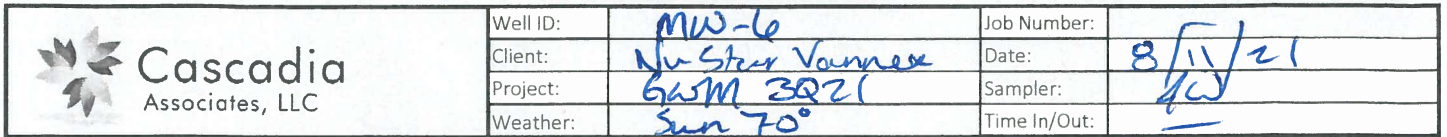 Cascadia
Associates, LLC
Well ID: MW-6
Job Number:
Client: NuStar Vannex
Date: 8/11/21
Project: GWM 3Q21
Sampler:
Weather: Sun 70°
Time In/Out: —